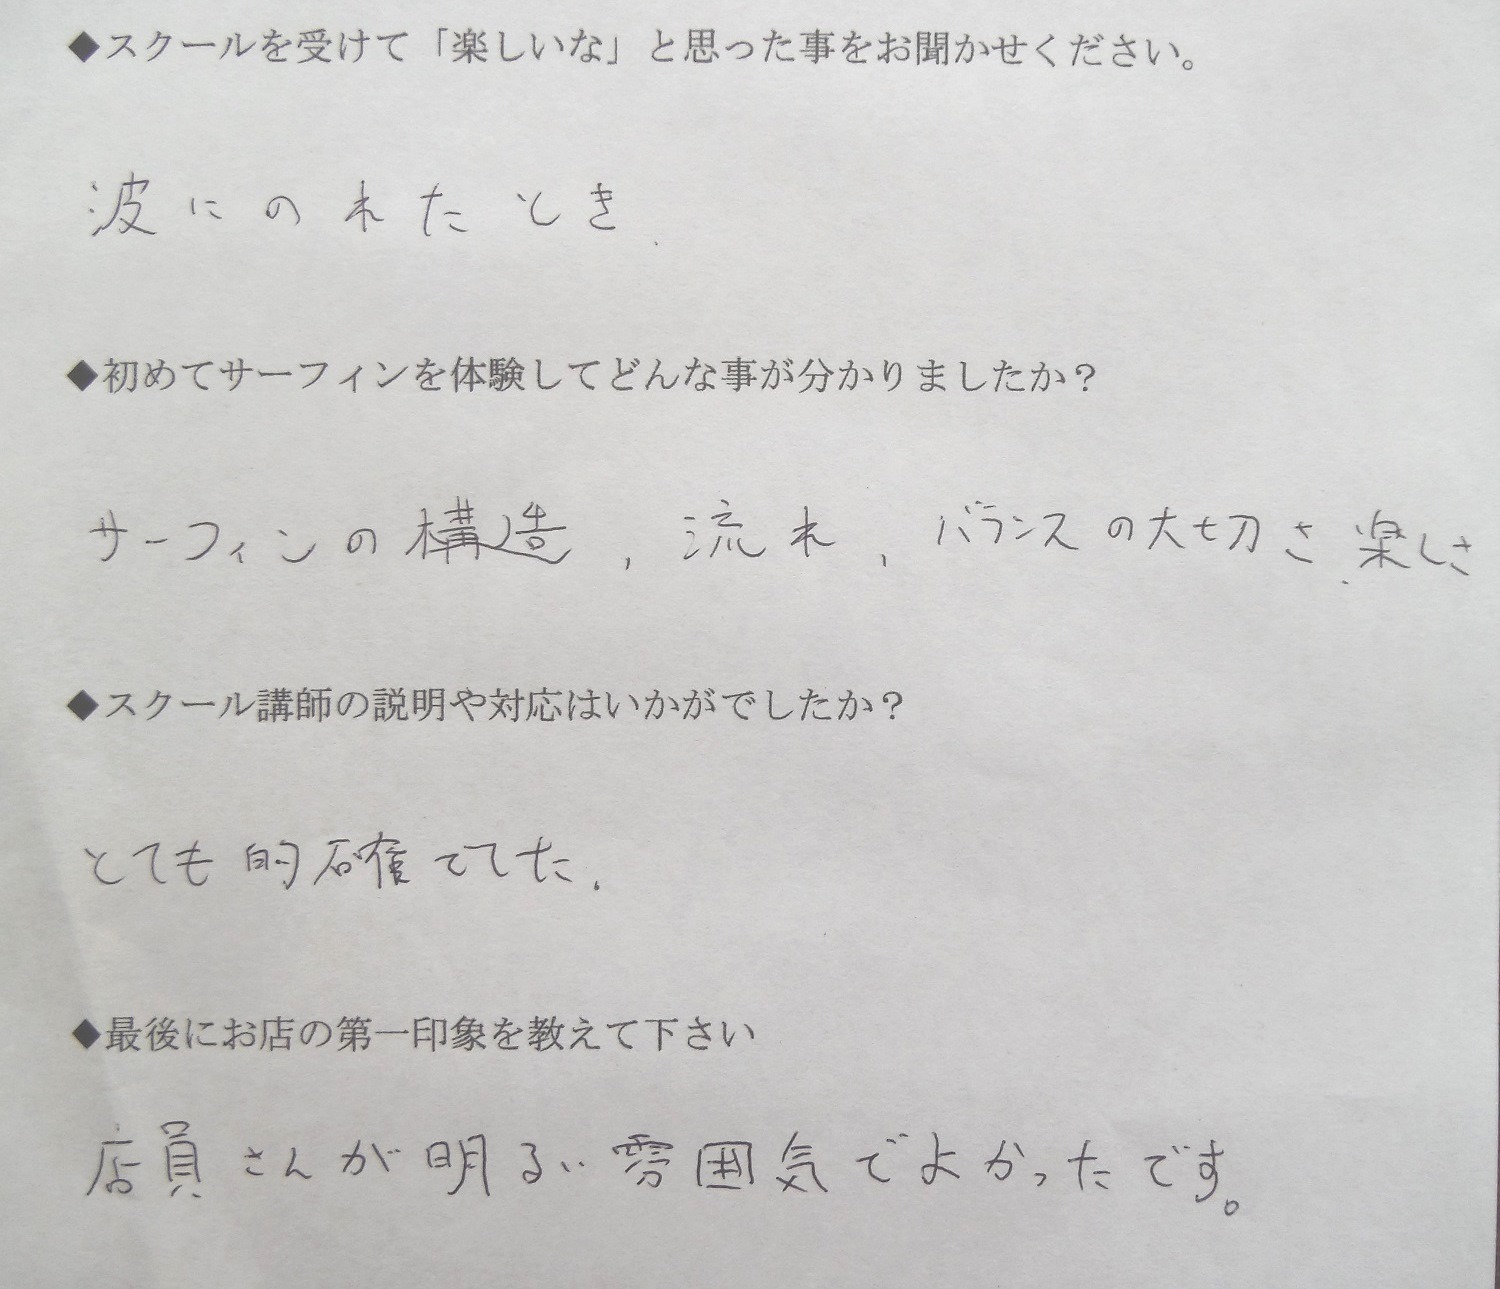 ◆スクールを受けて「楽しいな」と思った事をお聞かせください。
波にのれたとき.
◆初めてサーフィンを体験してどんな事が分かりましたか？
サーフィンの構造，流れ，バランスの大切さ.楽しさ
◆スクール講師の説明や対応はいかがでしたか？
とても的確ででした.
◆最後にお店の第一印象を教えて下さい
店員さんが明るい雰囲気でよかったです。